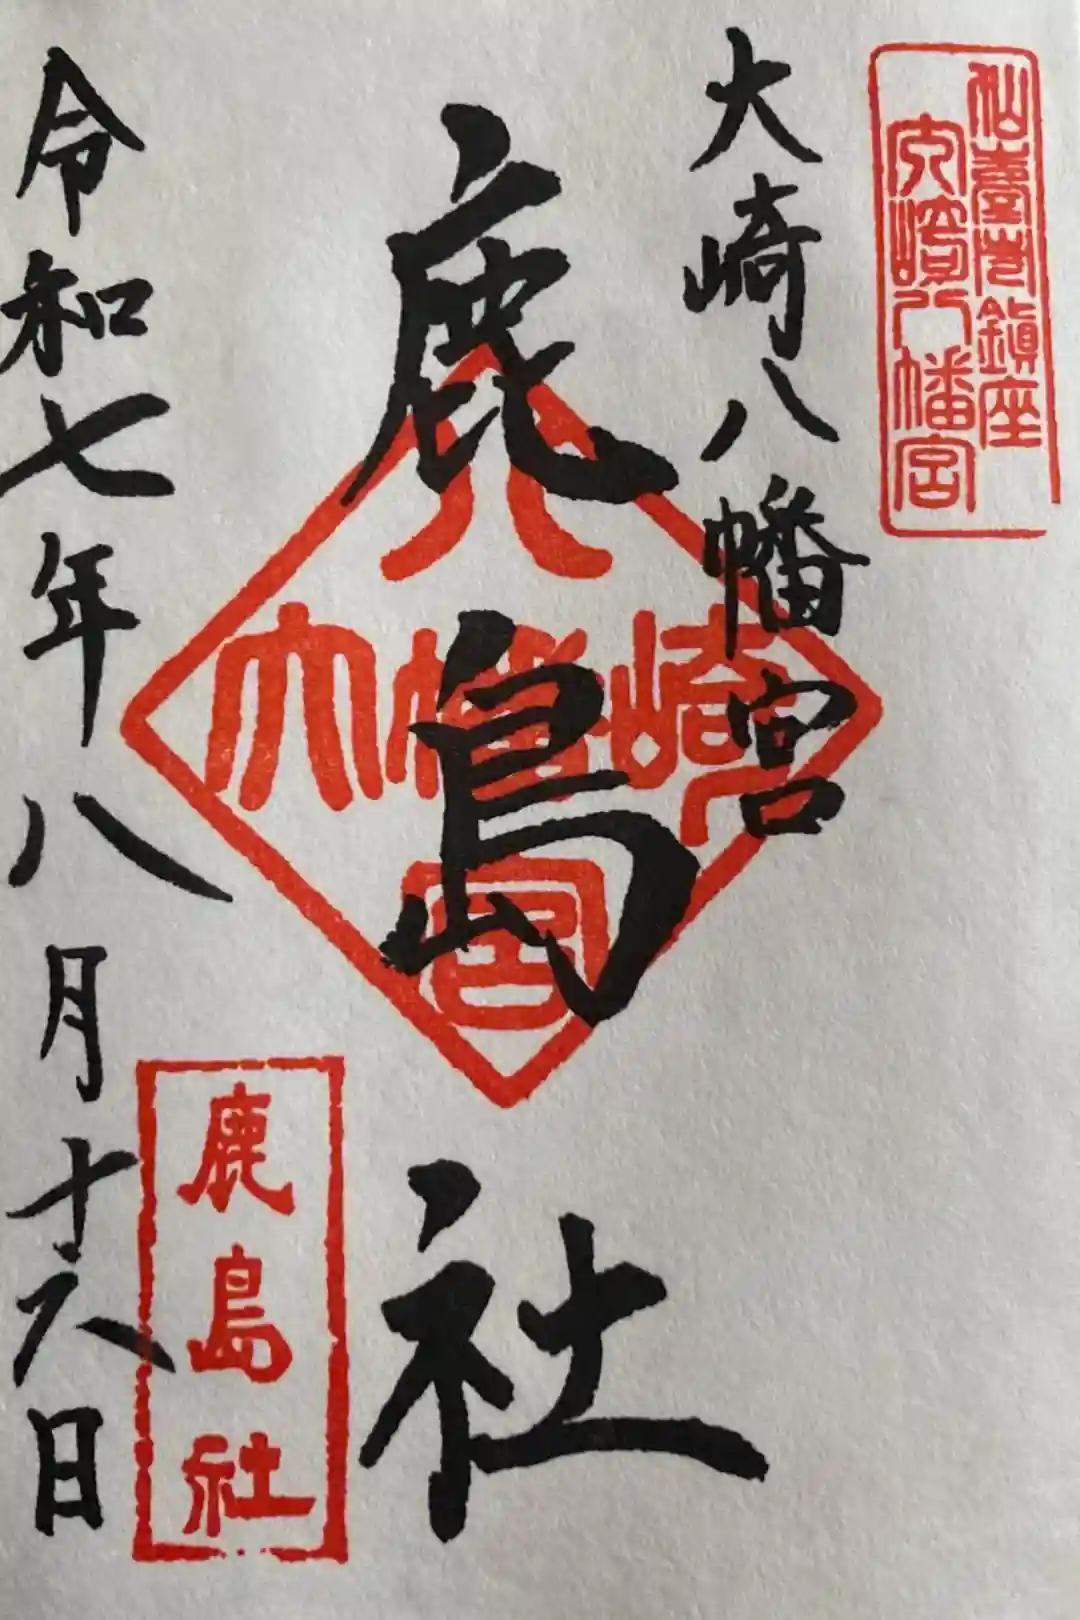 仙臺市鎮座
大崎八幡宮
大崎八幡宮
鹿島社
八
大幡崎
宮
鹿島社
令和七年八月十六日